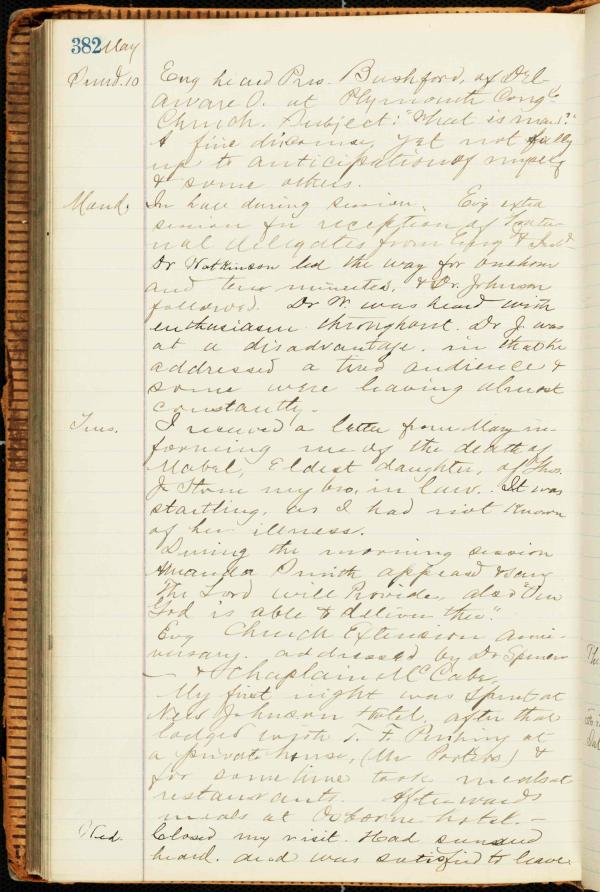 382 May
Sund. 10 Evg heard Pres. Bashford, of Del-
aware O. at Plymouth Cong'l
Church. Subject: "What is man?"
A fine discourse, yet not fully
up to anticipation of myself
& some others.
Mond. In have during session. Evg extra
session for reception of frater-
nal delegates from Eng & Ireld
Dr Watkinson led the way for one hour
and ten minutes, & Dr. Johnson
followed. Dr W. was heard with
enthusiasm throughout. Dr J. was
at a disadvantage in that he
addressed a tired audience &
some were leaving almost
constantly.
Tues. I received a letter from Mary in-
forming me of the death of
Mabel, Eldest daughter, of Thos.
J my bro. in law. It was
startling, as I had not known
of her illness.
During the morning session
Amanda Smith appeared & sang
"The Lord will Provide, also "Our
God is able to deliver thee".
Evg Church Extension anni-
versary. addressed by Dr Spencer
— & Chaplain McCabe.
My first night was spent at
New Johnson Hotel, after that
lodged with T. F. at
a private house, (Mr Porters) &
for some time took meals at
restaurants. Afterwards
meals at Osborne hotel. —
Wed. Closed my visit. Had seen and
heard. and was satisfied to leave